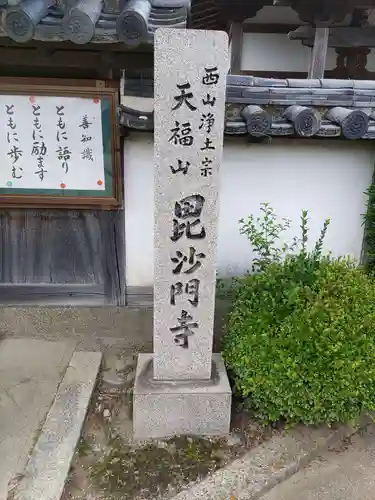 西山浄土宗
天福山
毘沙門寺
善知識
ともに語り
ともに励ます
ともに歩む